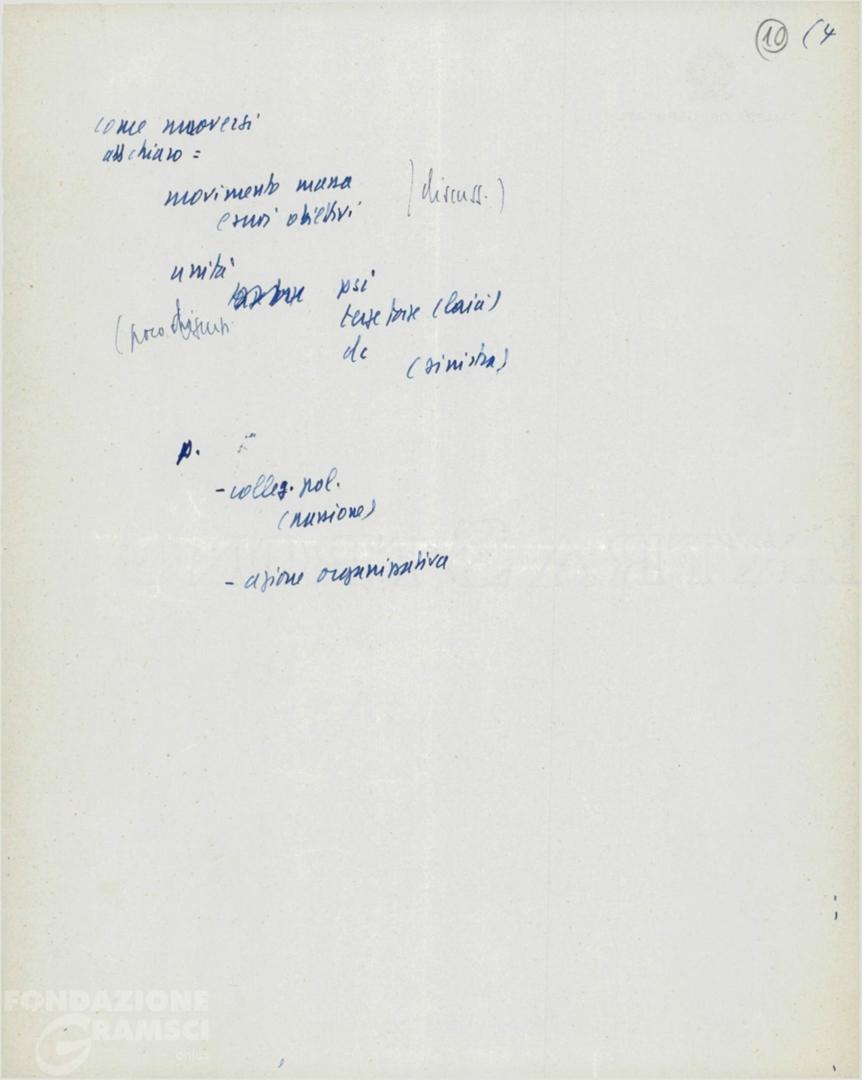 10 (4
come muoversi
abb chiaro =
movimento massa
e suoi obiettivi
(discuss.)
unità
psi
terze forze (laici)
(poco discuss.
dc
(sinistra)
p.
- colleg. pol.
(passione)
- azione organizzativa
FONDAZIONE
GRAMSCI
onlus